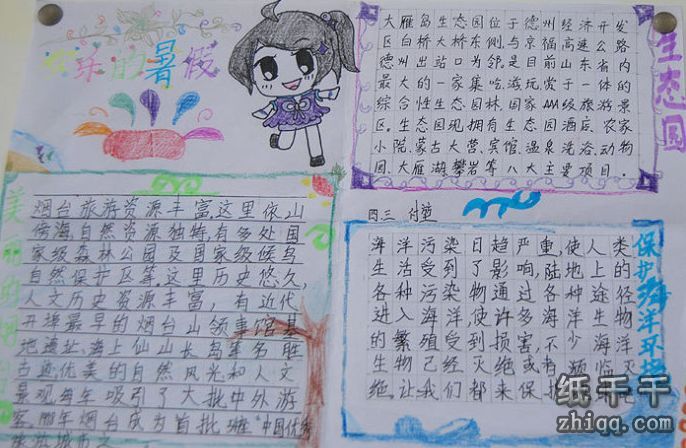 快乐的暑假
大雁岛生态园位于德州经济开发
区白桥大桥东侧,与京福高速公路
德州出站口为邻,是目前山东省内
最大的一家集吃、游、玩、赏于一体的
综合性生态园林,国家AAA级旅游景
区。生态园现拥有生态园酒店、农家
小院、蒙古大营、宾馆、温泉洗浴、动物
园、大雁湖、攀岩等八大主要项目。
生态园
美丽的
烟台旅游资源丰富,这里依山
傍海,自然资源独特,有多处国
家级森林公园及国家级候鸟
自然保护区等。这里历史悠久,
人文历史资源丰富,有近代
开埠最早的烟台山领事馆基
地遗址,海上仙山长岛等名胜
古迹,优美的自然风光和人文
景观每年吸引了大批中外游
客,那年烟台成为首批"中国优秀
旅游城市之
四三
海洋污染日趋严重,使人类
生活受到了影响,陆地上的
各种污染物通过各种途径
进入海洋,使许多海洋生物
的繁殖受到损害,不少海洋
生物已经灭绝或者频临灭
绝,让我们都来保
保护海洋环境
纸千千
zhiqq.com